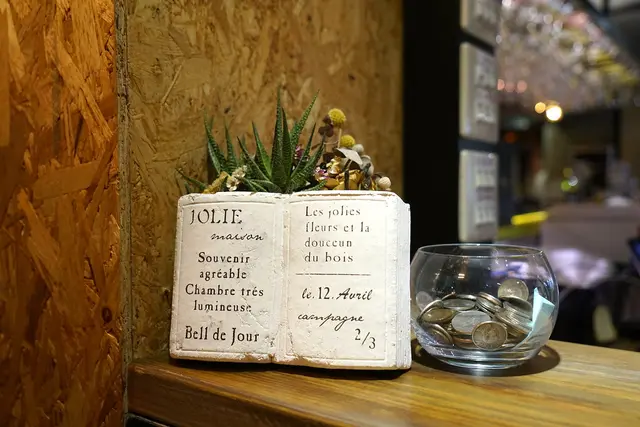 JOLIE
maison
Souvenir
agréable
Chambre trés
lumineuse
Bell de Jour
Les jolies
fleurs et la
douceun
du bois
le. 12. Avril
campagne
2/3